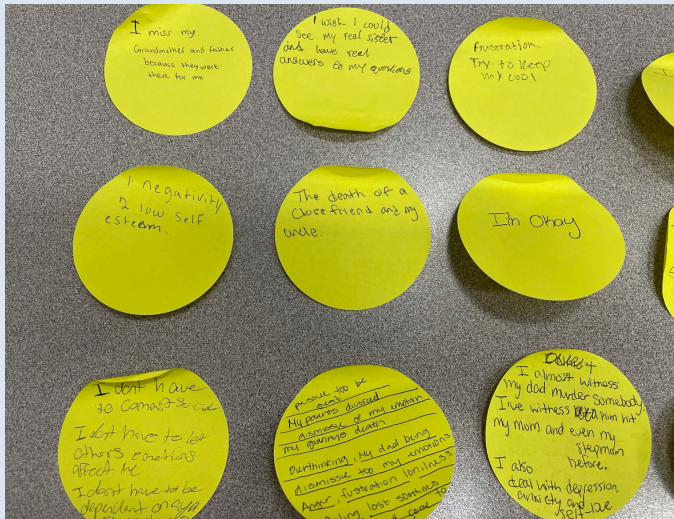 I miss my
Grandmother and father
because they were
there for me
I wish I could
see my real sister
and have real
answers to my questions
frustration
Try to keep
my cool
1. negativity
2 low self
esteem.
The death of a
close friend and my
uncle.
I'm Okay
I dont have
to commit
I dont have to let
others emotions
affect me
I dont have to be
dependent on
too be
My parents divorced
dismissle of my emotion
my grannys death
overthinking, My dad being
dismissle too my emotions
Anger, fustration lonliness
lost somtimes
I almost witness
my dad murder somebody.
I've witness him hit
my mom and even my
stepmom
before.
I also
deal with depression,
anxiety and
self love